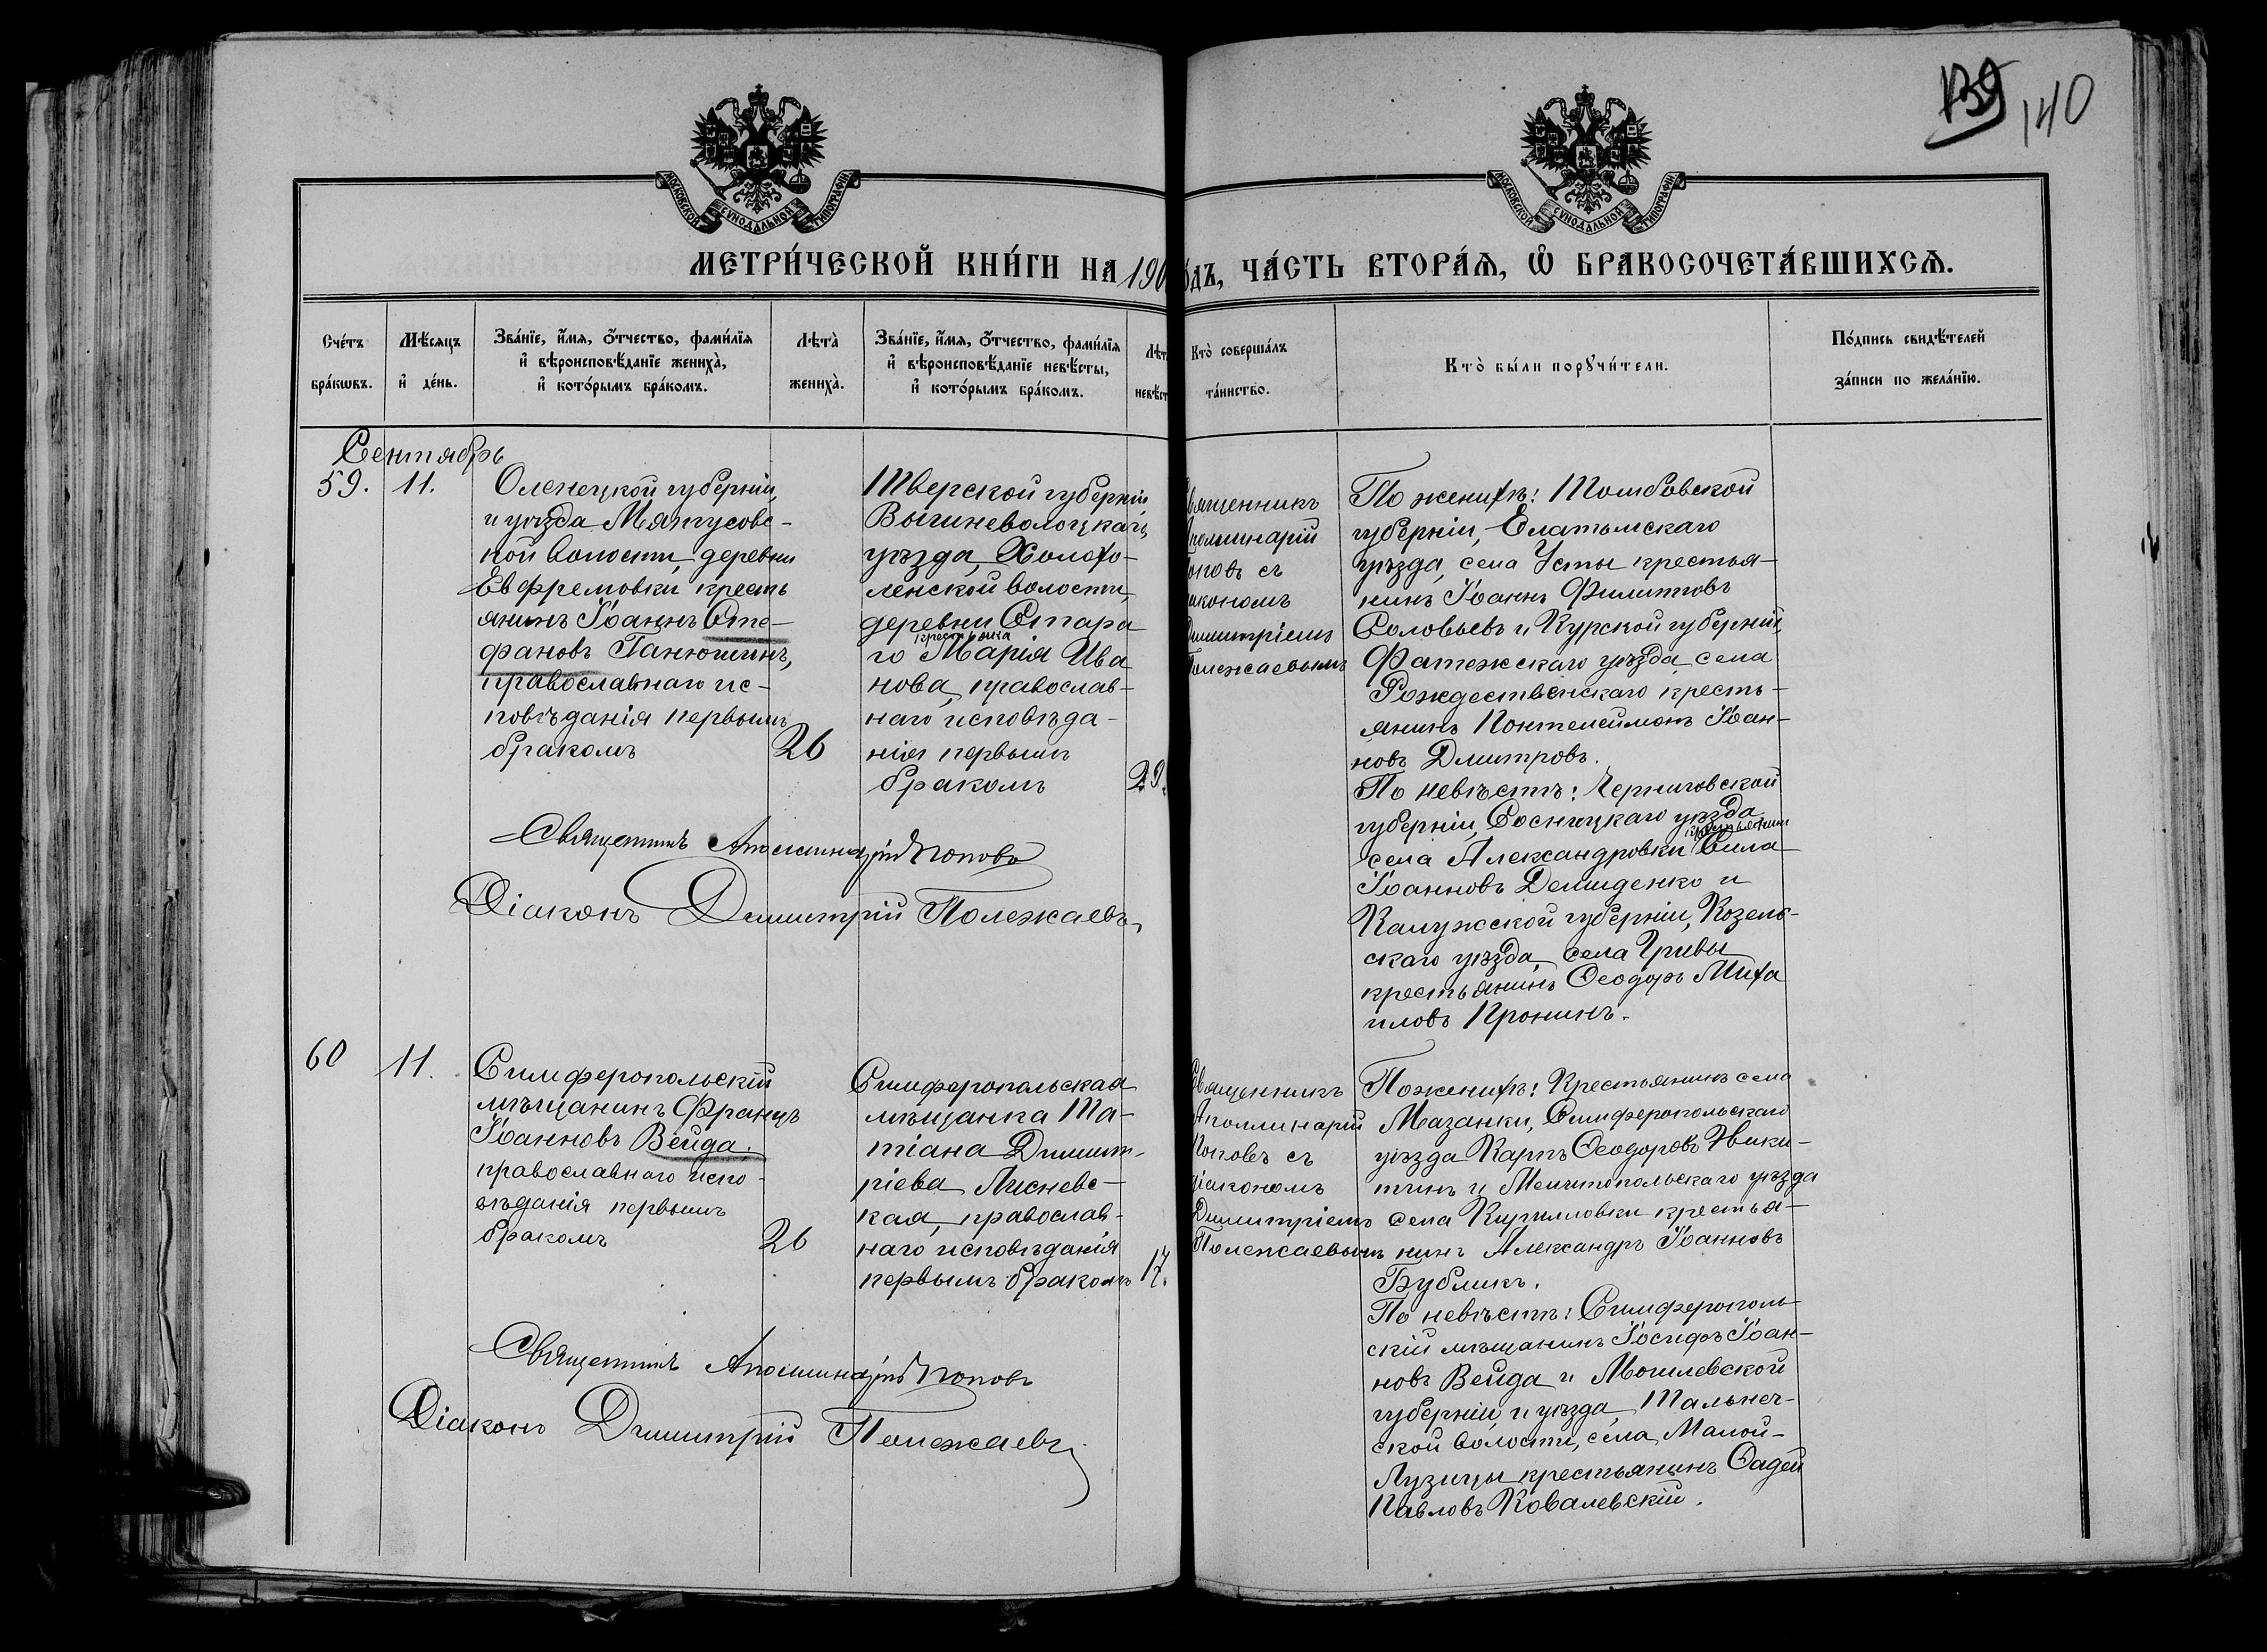 139 140
МОСКОВСКОЙ СѴНОДАЛЬНОЙ ТИПОГРАФІИ
МОСКОВСКОЙ СѴНОДАЛЬНОЙ ТИПОГРАФІИ
МЕТРИ́ЧЕСКОЙ КНИ́ГИ НА 190
о́дъ, ЧА́СТЬ ВТОРА́Ѧ, Ѡ҆ БРАКОСОЧЕТА́ВШИХСѦ.
Сче́тъ бра́кѡвъ.
Мѣ́сяцъ и҆ де́нь.
Зва́нїе, и҆́мя, ѻ҆́тчество, фами́лїя
и҆ вѣроисповѣ́данїе жениха̀,
и҆ кото́рымъ бра́комъ.
Лѣта̀ жениха̀.
Зва́нїе, и҆́мя, ѻ҆́тчество, фами́лїя
и҆ вѣроисповѣ́данїе невѣ́сты,
и҆ кото́рымъ бра́комъ.
Лѣт
невѣст
Кто̀ соверша́лъ
та́инство.
Кто̀ бы́ли порꙋчи́тели.
По́дпись свидѣ́телей
за́писи по жела́нїю.
Сентябрь
59. 11.
Олонецкой губерніи,
и уѣзда Мятусовс-
кой волости, деревни
Евфремовки кресть
янинъ Іоаннъ Сте-
фановъ Панюшинъ,
православнаго ис-
повѣданія первымъ
бракомъ
26
Тверской губерніи
Вышневолоцкаго,
уѣзда, Холохо-
ленской волости,
деревни Стара
крестьянка
го Марія Ива
нова, православ-
наго исповѣда-
нія первымъ
бракомъ
29.
вященникъ
поллинарій
оповъ съ
іакономъ
Димитріемъ
Полежаевымъ
По женихѣ: Тамбовской
губерніи, Елатомскаго
уѣзда, села Усты крестья-
нинъ Іоаннъ Филипповъ
Соловьевъ и Курской губерніи,
Фатежскаго уѣзда, села
Рождественскаго кресть-
янинъ Понтелеймонъ Іоан-
новъ Дмитровъ.
По невѣстѣ: Черниговской
губерніи, Сосницкаго уѣзда
крестьянин
села Александровки Сила
Іоанновъ Демиденко и
Калужской губерніи, Козель-
скаго уѣзда, села Гривы
крестьянинъ Ѳеодоръ Миха
иловъ Пронинъ.
Священникъ Аполлинарій Поповъ
Діаконъ Димитрій Полежаевъ
60 11.
Симферопольскій
мѣщанинъ Францъ
Іоанновъ Вейда,
православнаго испо-
вѣданія первымъ
бракомъ
26
Симферопольская
мѣщанка Та-
тіана Димит-
ріева Лисневс-
кая, православ-
наго исповѣданія
первымъ бракомъ
17.
Священникъ
Аполлинарій
Поповъ съ
діакономъ
Димитріемъ
Полежаевымъ
По женихѣ: Крестьянинъ села
Мазанки, Симферопольскаго
уѣзда Карпъ Ѳеодоровъ Ники-
тинъ и Мелитопольскаго уѣзда
села Кирилловки крестья-
нинъ Александръ Іоанновъ
Бубликъ.
По невѣстѣ: Симферополь
скій мѣщанинъ Іосифъ Іоан-
новъ Вейда и Могилевской
губерніи и уѣзда, Тальнеч-
ской волости, села Малой-
Лузицы крестьянинъ Ѳадей
Павловъ Ковалевскій.
Священникъ Аполлинарій Поповъ
Діаконъ Димитрій Полежаевъ